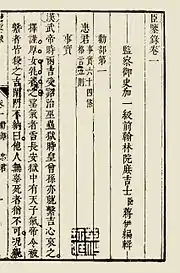 臣鑒錄卷一
監察御史加一級前翰林院庶吉士臣蔣伊編輯
勸部第一
忠君
事實六十四條
格言五則
事實
漢武帝時丙吉受詔治巫蠱獄時皇曾孫亦就繫吉心哀之
擇謹厚女乳養之望氣者言長安獄中有天子氣帝令被
繫者皆殺之吉閉門不納曰他人無辜死者猶不可況親
卷一
忠君